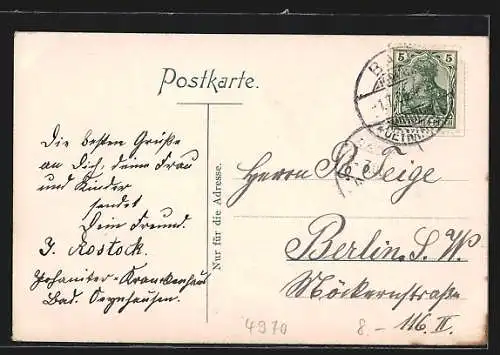 Postkarte.
Die besten Grüße
an Dich, deine Frau
und Kinder
sendet
Dein Freund.
J. Rostock.
Johaniter-Krankenhaus
Bad. Oeynhausen.
Nur für die Adresse.
5 5
Herrn R. Feige
Berlin. S. W.
Möckernstraße
116. II.
4970
8.-